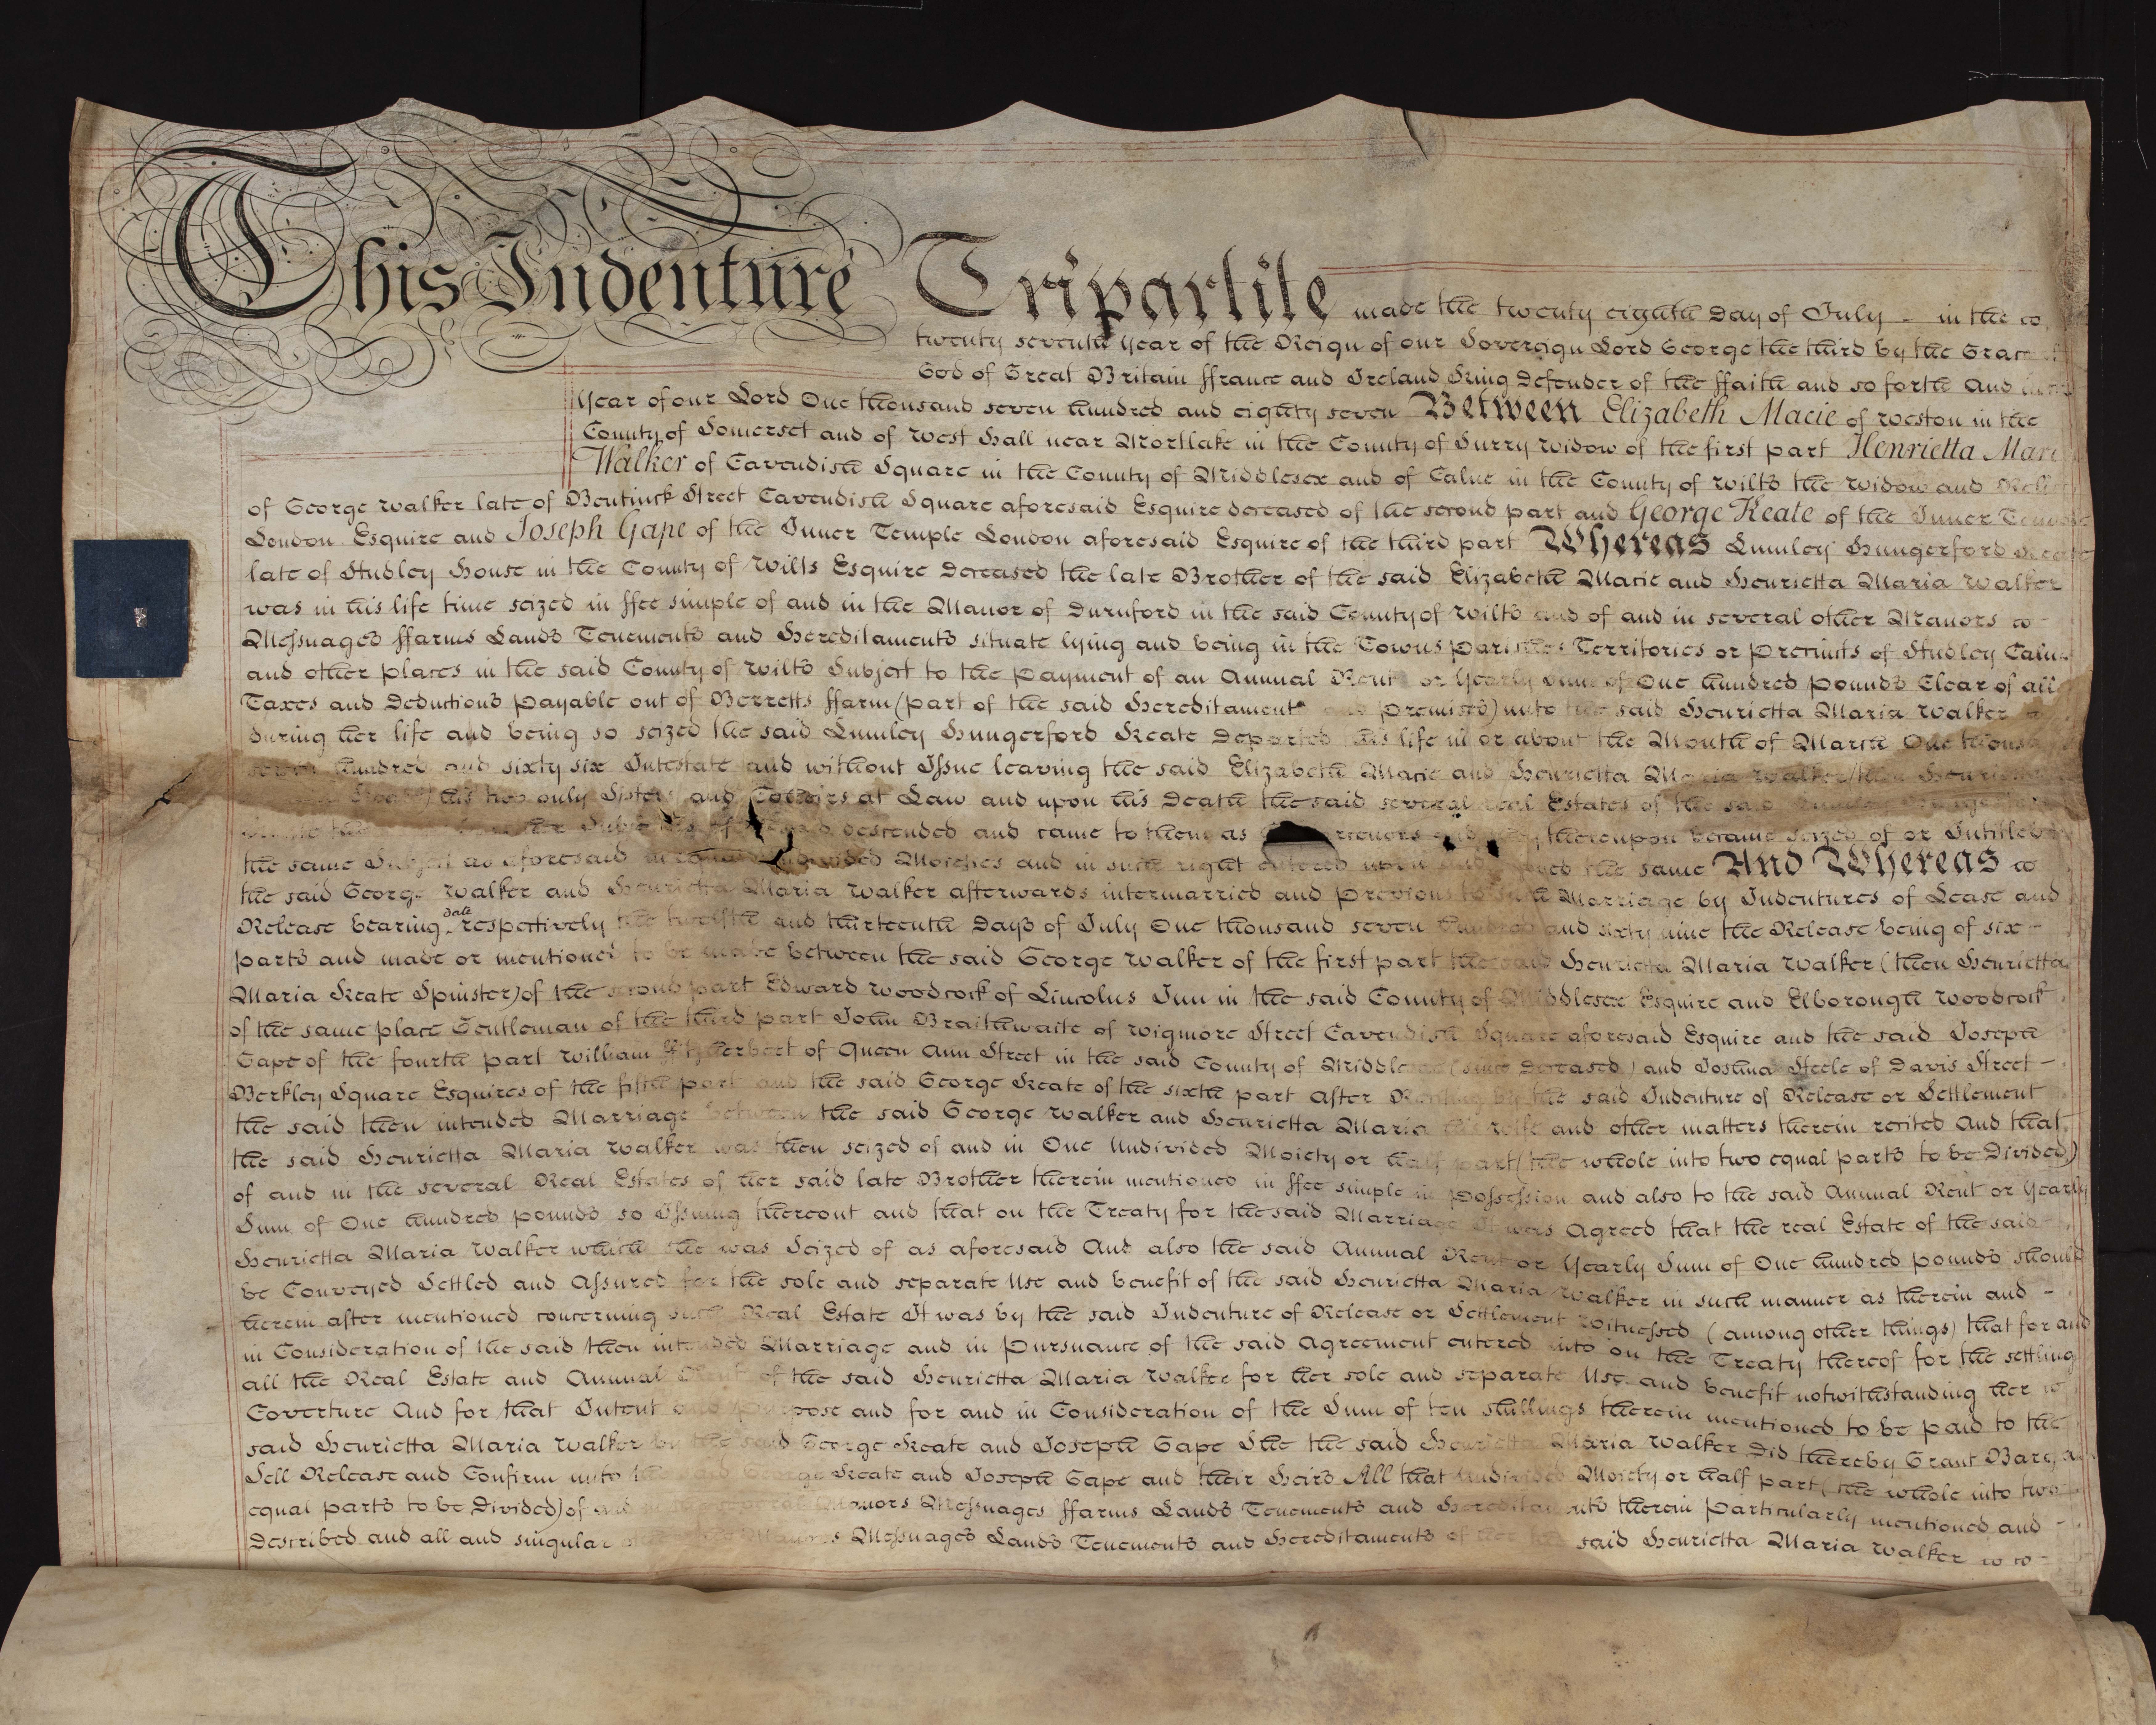 This Indenture Tripartite made the twenty eighth Day of July in the
twenty seventh Year of the Reign of our Sovereign Lord George the third by the Grace of
God of Great Britain ffrance and Ireland King Defender of the ffaith and so forth And
Year of our Lord One thousand seven hundred and eighty seven Between Elizabeth Macie of Weston in the
County of Somerset and of West Hall near Mortlake in the County of Surry Widow of the first part Henrietta Mari
Walker of Cavendish Square in the County of Middlesex and of Calne in the County of Wilts the Widow and Relict
of George Walker late of Bentinck Street Cavendish Square aforesaid Esquire deceased of the second part and George Keate of the Inner Temple
London Esquire and Joseph Gape of the Inner Temple London aforesaid Esquire of the third part Whereas Lumley Hungerford Keate
late of Studley House in the County of Wilts Esquire Deceased the late Brother of the said Elizabeth Macie and Henrietta Maria Walker
was in his life time seized in ffee simple of and in the Manor of Durnford in the said County of Wilts and of and in several other Manors
Messuages ffarms Lands Tenements and Hereditaments situate lying and being in the Towns parishes Territories or precincts of Studley Calne
and other places in the said County of Wilts Subject to the payment of an Annual Rent or Yearly Sum of One hundred pounds Clear of all
Taxes and Deductions payable out of Berretts ffarm (part of the said Hereditaments and premises) unto the said Henrietta Maria Walker
during her life and being so seized the said Lumley Hungerford Keate Departed this life in or about the Month of March One thousand
seven hundred and sixty six Intestate and without Issue leaving the said Elizabeth Macie and Henrietta Maria Walker (then Henrietta
Keate) his two only Sisters and Coheirs at Law and upon his Death the said several real Estates of the said
descended and came to them as and they thereupon became seized of or Intitled
the same Subject as aforesaid in undivided Moieties and in such right entered upon and the same And Whereas
the said George Walker and Henrietta Maria Walker afterwards intermarried and previous to such Marriage by Indentures of Lease and
Release bearing date respectively the twelfth and thirteenth Days of July One thousand seven hundred and sixty nine the Release being of six
parts and made or mentioned to be made between the said George Walker of the first part the said Henrietta Maria Walker (then Henrietta
Maria Keate Spinster) of the second part Edward Woodcock of Lincolns Inn in the said County of Middlesex Esquire and Elborough Woodcock
of the same place Gentleman of the third part John Braithwaite of Wigmore Street Cavendish Square aforesaid Esquire and the said Joseph
Gape of the fourth part William ffitzherbert of Queen Ann Street in the said County of Middlesex (since Deceased) and Joshua Steele of Davis Street
Berkley Square Esquires of the fifth part and the said George Keate of the sixth part After Reciting by the said Indenture of Release or Settlement
the said then intended Marriage between the said George Walker and Henrietta Maria his wife and other matters therein recited And that
the said Henrietta Maria Walker was then seized of and in One Undivided Moiety or half part (the whole into two equal parts to be Divided)
of and in the several Real Estates of her said late Brother therein mentioned in ffee simple in possession and also to the said Annual Rent or Yearly
Sum of One hundred pounds so Issuing thereout and that on the Treaty for the said Marriage It was Agreed that the real Estate of the said
Henrietta Maria Walker which she was Seized of as aforesaid And also the said Annual Rent or Yearly Sum of One hundred pounds should
be Conveyed Settled and Assured for the sole and separate Use and benefit of the said Henrietta Maria Walker in such manner as therein and
therein after mentioned concerning such Real Estate It was by the said Indenture of Release or Settlement Witnessed (among other things) that for and
in Consideration of the said then intended Marriage and in pursuance of the said Agreement entered into on the Treaty thereof for the settling
all the Real Estate and Annual Rent of the said Henrietta Maria Walker for her sole and separate Use and benefit notwithstanding her
Coverture And for that Intent and purpose and for and in Consideration of the Sum of ten shillings therein mentioned to be paid to the
said Henrietta Maria Walker by the said George Keate and Joseph Gape She the said Henrietta Maria Walker Did thereby Grant Bargain
Sell Release and Confirm unto the said George Keate and Joseph Gape and their Heirs All that Undivided Moiety or half part (the whole into two
equal parts to be Divided) of and Manors Messuages ffarms Lands Tenements and Hereditaments therein particularly mentioned and
Described and all and singular Messuages Lands Tenements and Hereditaments of said Henrietta Maria Walker